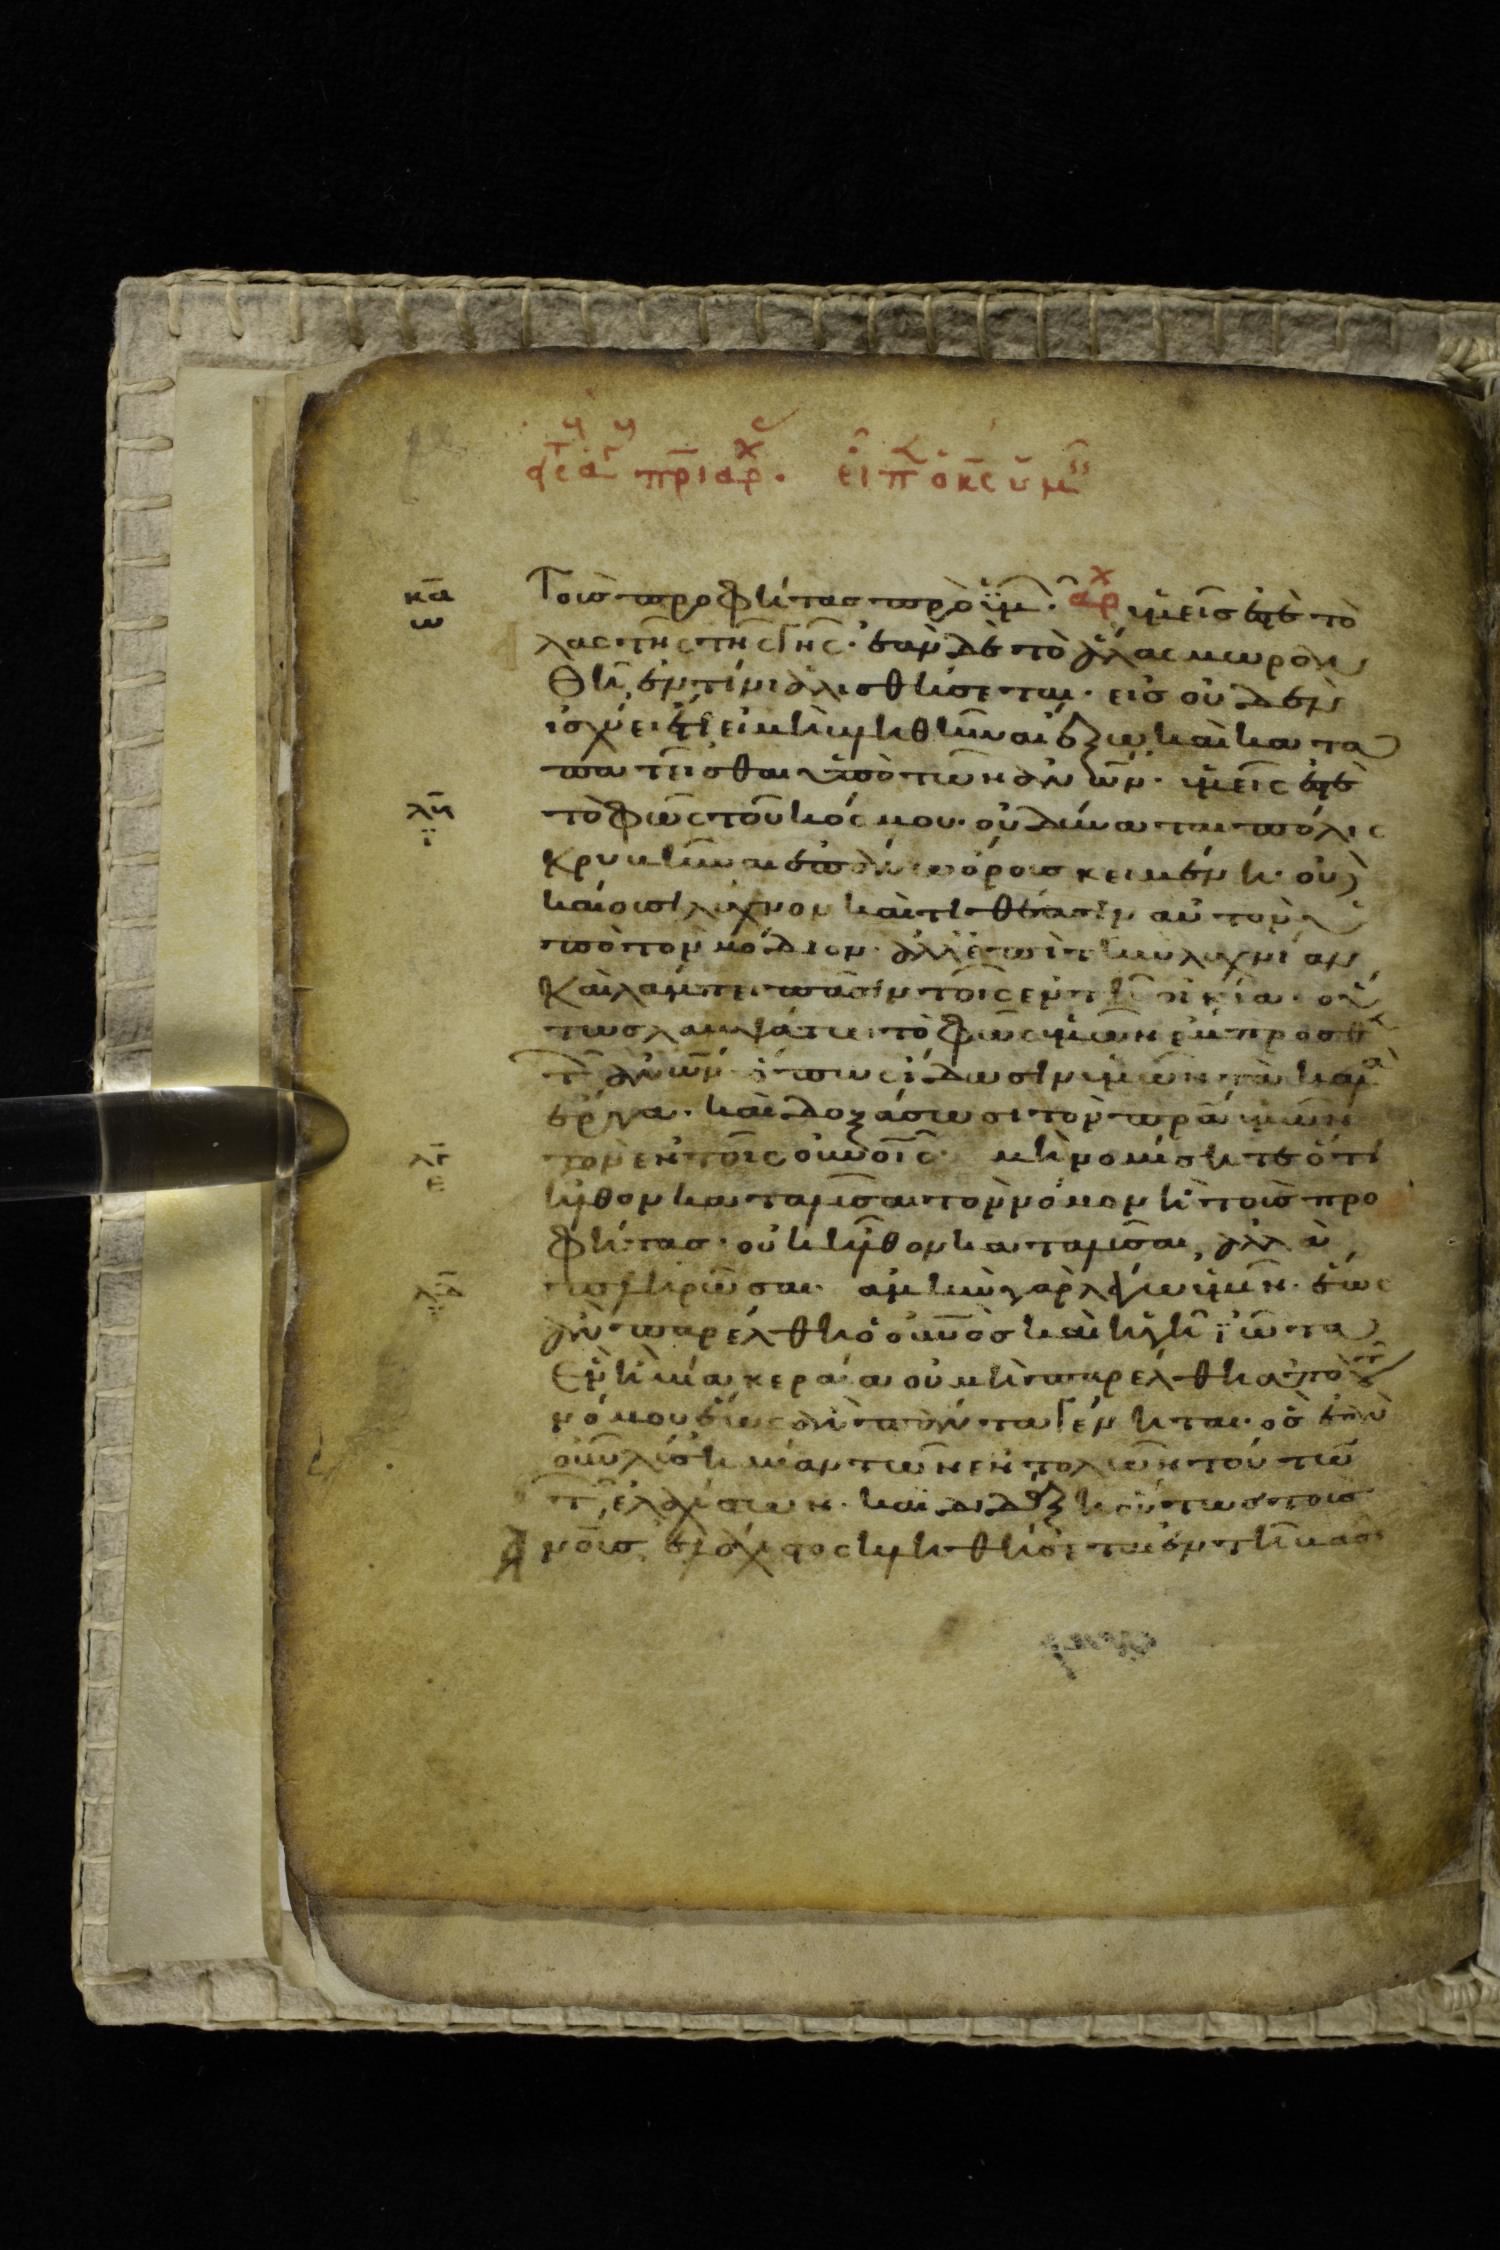 τοὺσ προφήτασ πρὸ ϋμ· ἀρχ ὑμεῖσ ἐστὲ τὸ
λας τῆς γῆς· ἐὰν δὲ τὸ ἅλας μωρὸν
θῆ, ἐν τίνι ἁλισθήσεται· εἰσ οὐδὲν
ἰσχύει ἔτι εἰ μὴ βληθῆναι ἔξω καὶ κατα
πατεῖσθαι ὑπὸ τῶν ἀνων· ὑμεῖς ἐστὲ
τὸ φῶς τοῦ κόσμου· οὐ δύναται πόλις
κρυβῆναι ἐπάνω ὄρους κειμένη· οὐδὲ
καίουσι λύχνον καὶ τιθέασιν αὐτὸν ὑ
πὸ τὸν μόδιον· ἀλλ ἐπὶ τὴν λυχνίαν
καὶ λάμπει πᾶσιν τοῖς ἐν τῆ οἰκία· οὕ
τωσ λαμψάτω τὸ φῶς ὑμῶν ἔμπροσθ
τ ἀνων· ὅπως ἴδωσιν ὑμῶν τὰ καλὰ
ἔργα· καὶ δοξάσωσι τὸν πρα ὑμῶν
τὸν ἐν τοῖς οὐνοῖς· μὴ νομίσητε ὅτι
ἦλθον καταλῦσαι τὸν νόμον ἢ τοὺσ προ
φήτασ· οὐκ ἦλθον καταλῦσαι, ἀλλὰ
πληρῶσαι· ἀμὴν γὰρ λέγω ὑμῖν· ἕως
ἂν παρέλθη ὁ οὐνὸσ καὶ ἡ γῆ ϊῶτα
ἓν ἢ μία κεραία οὐ μὴ παρέλθη ἀπὸ τοῦ
νόμου ἕως ἂν πάντα γένηται· ὃσ ἐὰν
οὖν λύση μίαν τῶν ἐντολῶν τούτων
τ ἐλαχίστων· καὶ διδάξη οὕτωσ τοὺσ
ἀνουσ, ἐλάχιστος κληθήσεται ἐν τῆ βασι
κα
ω
λη
λγ
λδ